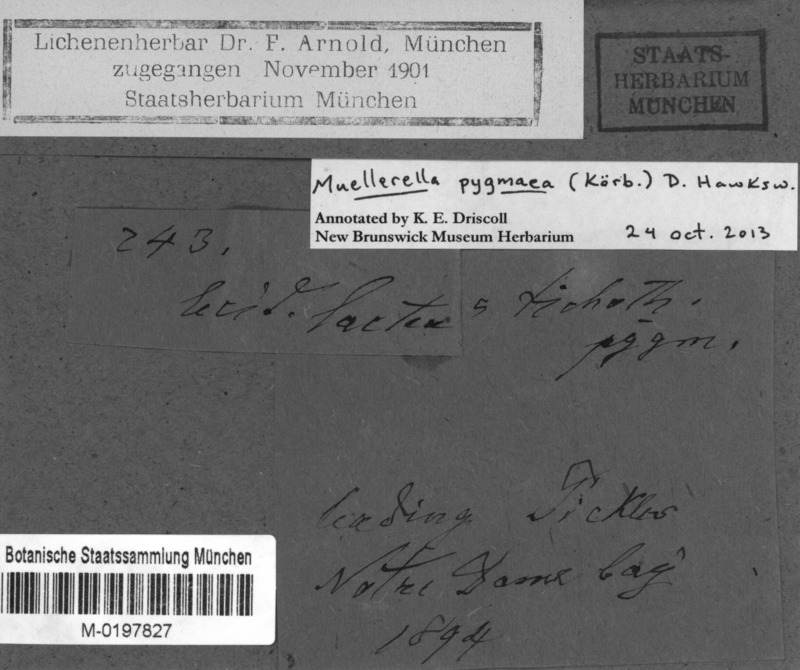 Lichenenherbar Dr. F. Arnold, München
zugegangen November 1901
Staatsherbarium München
STAATS-
HERBARIUM
MÜNCHEN
Muellerella pygmaea (Körb.) D. Hawksw.
Annotated by K. E. Driscoll
New Brunswick Museum Herbarium 24 oct. 2013
243.
lecid. lactea s tichoth.
pygm.
leading Tickles
Notre Dame bay
1894
Botanische Staatssammlung München
M-0197827